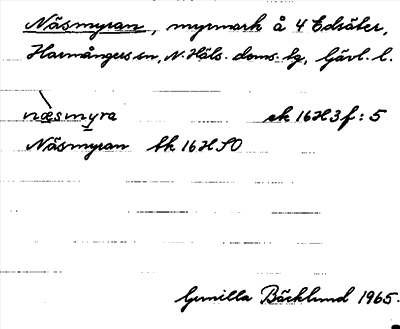 Näsmyran, myrmark å 4 Edsäter,
Harmångers sn, N. Häls. doms. lg, Gävl. l.
næsmyra ek 16H3f:5
Näsmyran tk 16H SO
Gunilla Bäcklund 1965.